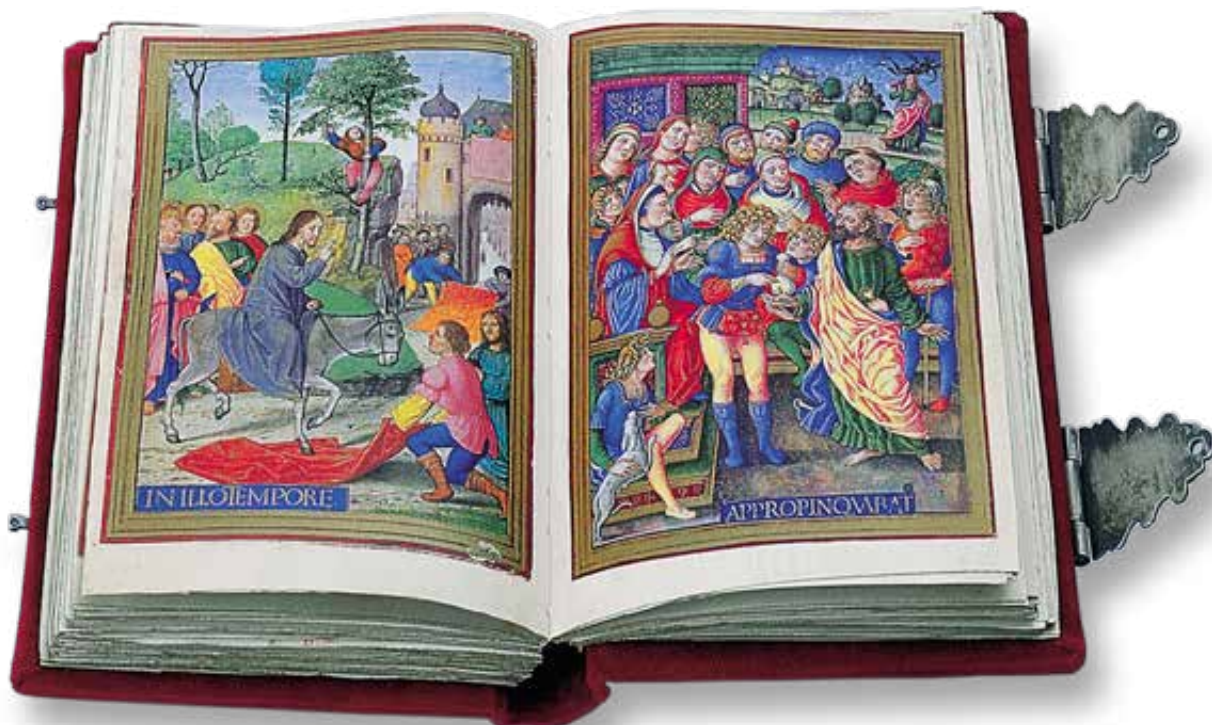 IN ILLO TEMPORE
APPROPINQVABAT